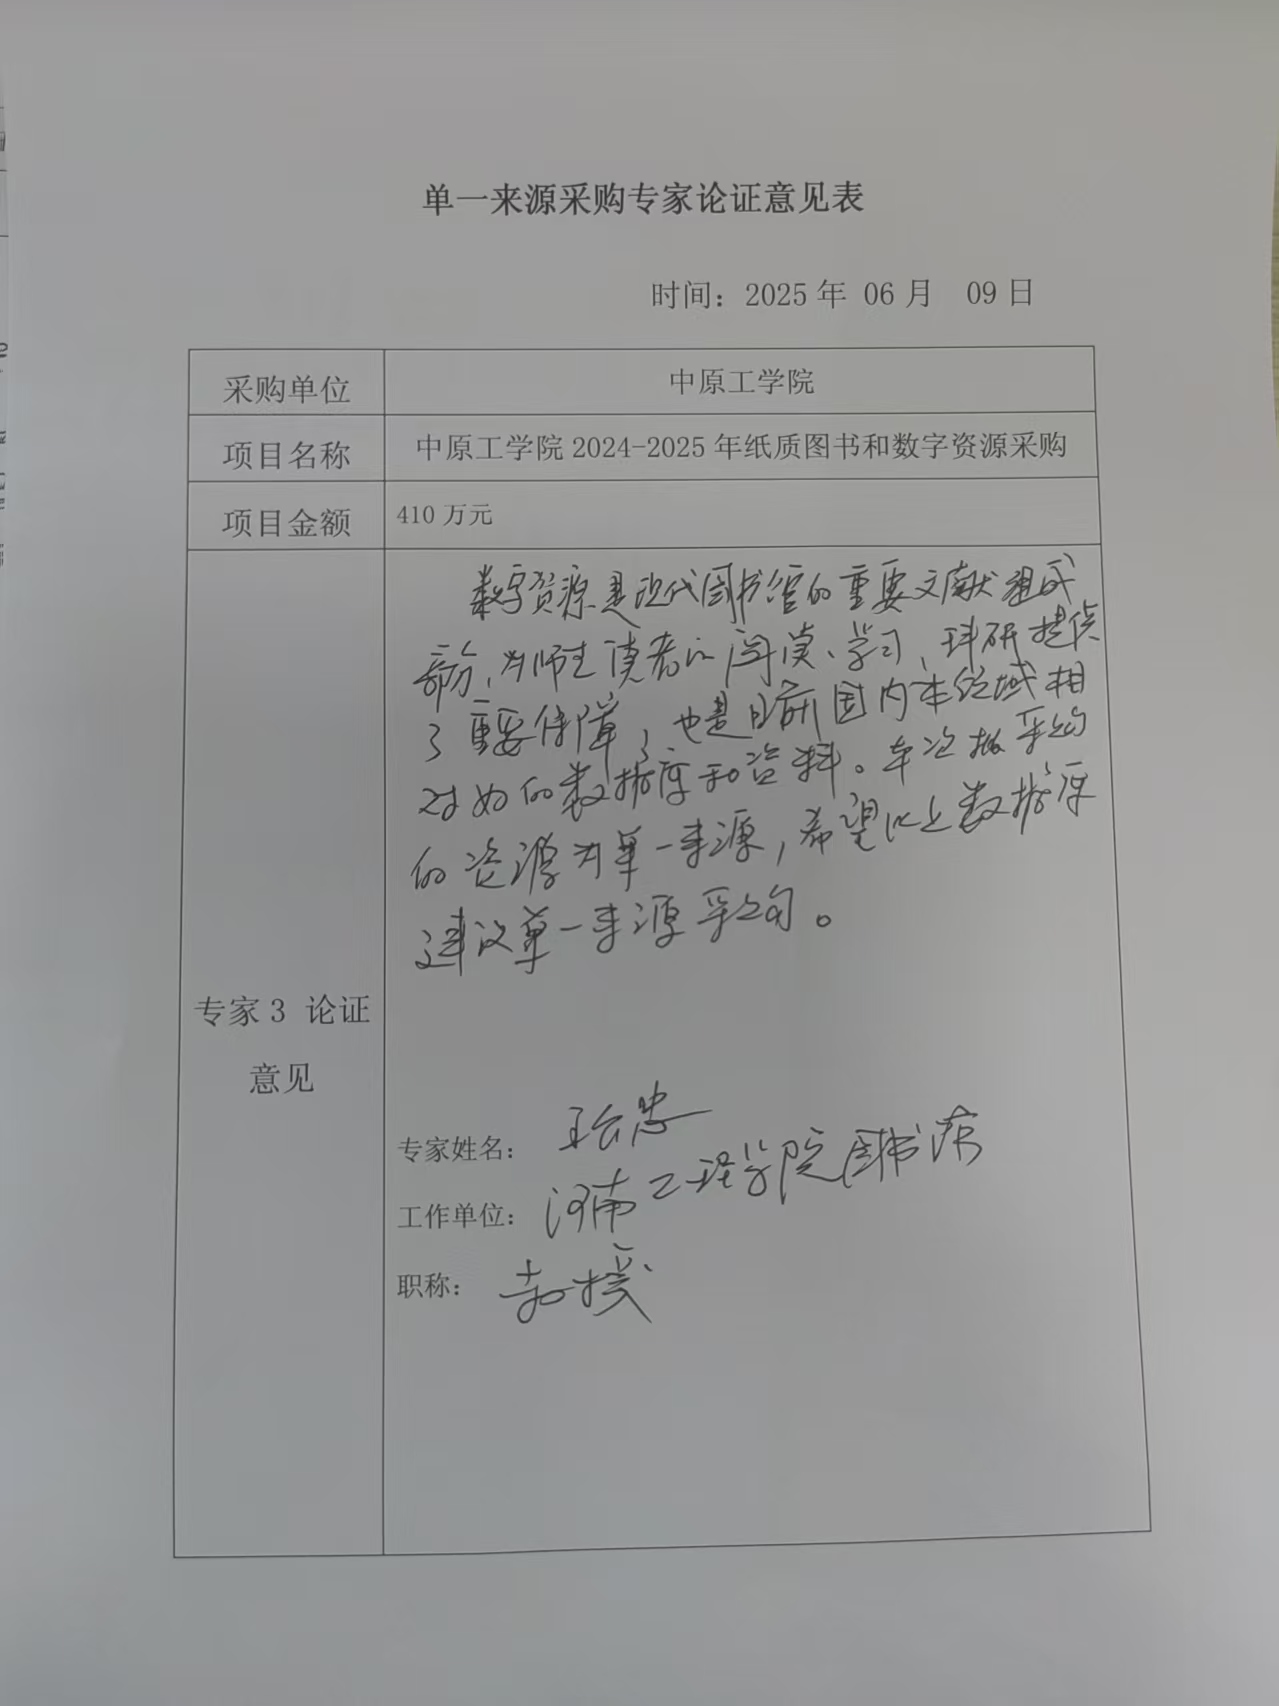 单一来源采购专家论证意见表
时间：2025年 06月 09日
采购单位
中原工学院
项目名称
中原工学院2024-2025年纸质图书和数字资源采购
项目金额
410万元
数字资源是现代图书馆的重要文献组成
部分，为师生读者的阅读、学习、科研提供
了重要保障，也是目前国内本领域相
对好的数据库和资料。本次拟采购
的资源为单一来源，希望以上数据库
建议单一来源采购。
专家3 论证
意见
专家姓名：
工作单位：河南工程学院图书馆
职称：教授